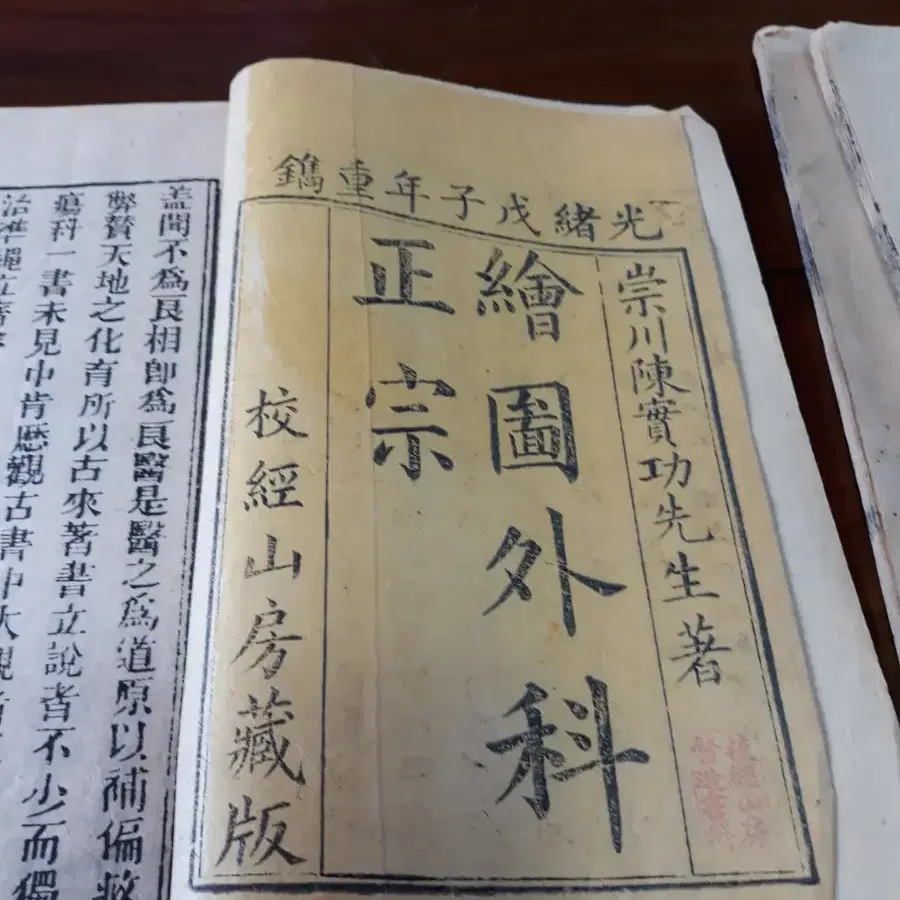 光緒戊子年重鐫
崇川陳實功先生著
繪圖外科
正宗
校經山房藏版
校經山房
督造書籍
盖聞不爲良相卽爲良醫是醫之爲道原以補偏救
弊贊天地之化育所以古來著書立說者不少而獨
瘍科一書未見中肯歷觀古書中大觀
治準繩立齋